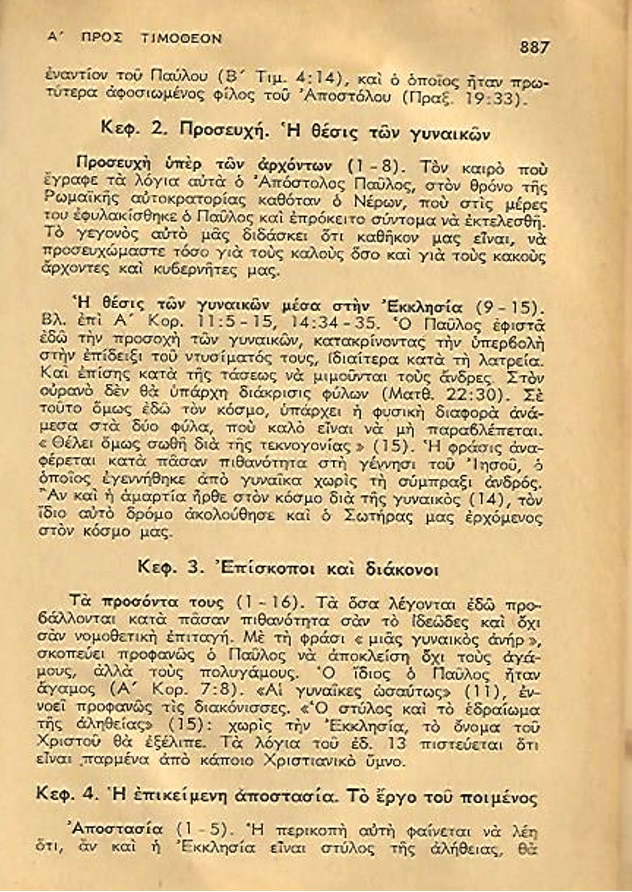 Α΄ ΠΡΟΣ ΤΙΜΟΘΕΟΝ
887
ἐναντίον τοῦ Παύλου (Β΄ Τιμ. 4:14), καὶ ὁ ὁποῖος ἦταν πρω-
τύτερα ἀφοσιωμένος φίλος τοῦ Ἀποστόλου (Πραξ. 19:33).
Κεφ. 2. Προσευχή. Ἡ θέσις τῶν γυναικῶν
Προσευχὴ ὑπὲρ τῶν ἀρχόντων (1-8). Τὸν καιρὸ ποὺ
ἔγραφε τὰ λόγια αὐτὰ ὁ Ἀπόστολος Παῦλος, στὸν θρόνο τῆς
Ρωμαϊκῆς αὐτοκρατορίας καθόταν ὁ Νέρων, ποὺ στὶς μέρες
του ἐφυλακίσθηκε ὁ Παῦλος καὶ ἐπρόκειτο σύντομα νὰ ἐκτελεσθῆ.
Τὸ γεγονὸς αὐτὸ μᾶς διδάσκει ὅτι καθῆκον μας εἶναι, νὰ
προσευχώμαστε τόσο γιὰ τοὺς καλοὺς ὅσο καὶ γιὰ τοὺς κακοὺς
ἄρχοντες καὶ κυβερνῆτες μας.
Ἡ θέσις τῶν γυναικῶν μέσα στὴν Ἐκκλησία (9-15).
Βλ. ἐπὶ Α΄ Κορ. 11:5-15, 14:34-35. Ὁ Παῦλος ἐφιστᾶ
ἐδῶ τὴν προσοχὴ τῶν γυναικῶν, κατακρίνοντας τὴν ὑπερβολὴ
στὴν ἐπίδειξι τοῦ ντυσίματός τους, ἰδιαίτερα κατὰ τὴ λατρεία.
Καὶ ἐπίσης κατὰ τῆς τάσεως νὰ μιμοῦνται τοὺς ἄνδρες. Στὸν
οὐρανὸ δὲν θὰ ὑπάρχη διάκρισις φύλων (Ματθ. 22:30). Σὲ
τοῦτο ὅμως ἐδῶ τὸν κόσμο, ὑπάρχει ἡ φυσικὴ διαφορὰ ἀνά-
μεσα στὰ δύο φύλα, ποὺ καλὸ εἶναι νὰ μὴ παραβλέπεται.
«Θέλει ὅμως σωθῆ διὰ τῆς τεκνογονίας» (15). Ἡ φράσις ἀνα-
φέρεται κατὰ πᾶσαν πιθανότητα στὴ γέννησι τοῦ Ἰησοῦ, ὁ
ὁποῖος ἐγεννήθηκε ἀπὸ γυναῖκα χωρὶς τὴ σύμπραξι ἀνδρός.
Ἂν καὶ ἡ ἁμαρτία ἦρθε στὸν κόσμο διὰ τῆς γυναικὸς (14), τὸν
ἴδιο αὐτὸ δρόμο ἀκολούθησε καὶ ὁ Σωτήρας μας ἐρχόμενος
στὸν κόσμο μας.
Κεφ. 3. Ἐπίσκοποι καὶ διάκονοι
Τὰ προσόντα τους (1-16). Τὰ ὅσα λέγονται ἐδῶ προ-
βάλλονται κατὰ πᾶσαν πιθανότητα σὰν τὸ ἰδεῶδες καὶ ὄχι
σὰν νομοθετικὴ ἐπιταγή. Μὲ τὴ φράσι «μιᾶς γυναικὸς ἀνήρ»,
σκοπεύει προφανῶς ὁ Παῦλος νὰ ἀποκλείση ὄχι τοὺς ἀγά-
μους, ἀλλὰ τοὺς πολυγάμους. Ὁ ἴδιος ὁ Παῦλος ἦταν
ἄγαμος (Α΄ Κορ. 7:8). «Αἱ γυναῖκες ὡσαύτως» (11), ἐν-
νοεῖ προφανῶς τὶς διακόνισσες. «Ὁ στύλος καὶ τὸ ἑδραίωμα
τῆς ἀληθείας» (15): χωρὶς τὴν Ἐκκλησία, τὸ ὄνομα τοῦ
Χριστοῦ θὰ ἐξέλιπε. Τὰ λόγια τοῦ ἐδ. 13 πιστεύεται ὅτι
εἶναι παρμένα ἀπὸ κάποιο Χριστιανικὸ ὕμνο.
Κεφ. 4. Ἡ ἐπικείμενη ἀποστασία. Τὸ ἔργο τοῦ ποιμένος
Ἀποστασία (1-5). Ἡ περικοπὴ αὐτὴ φαίνεται νὰ λέη
ὅτι, ἂν καὶ ἡ Ἐκκλησία εἶναι στύλος τῆς ἀλήθειας, θὰ